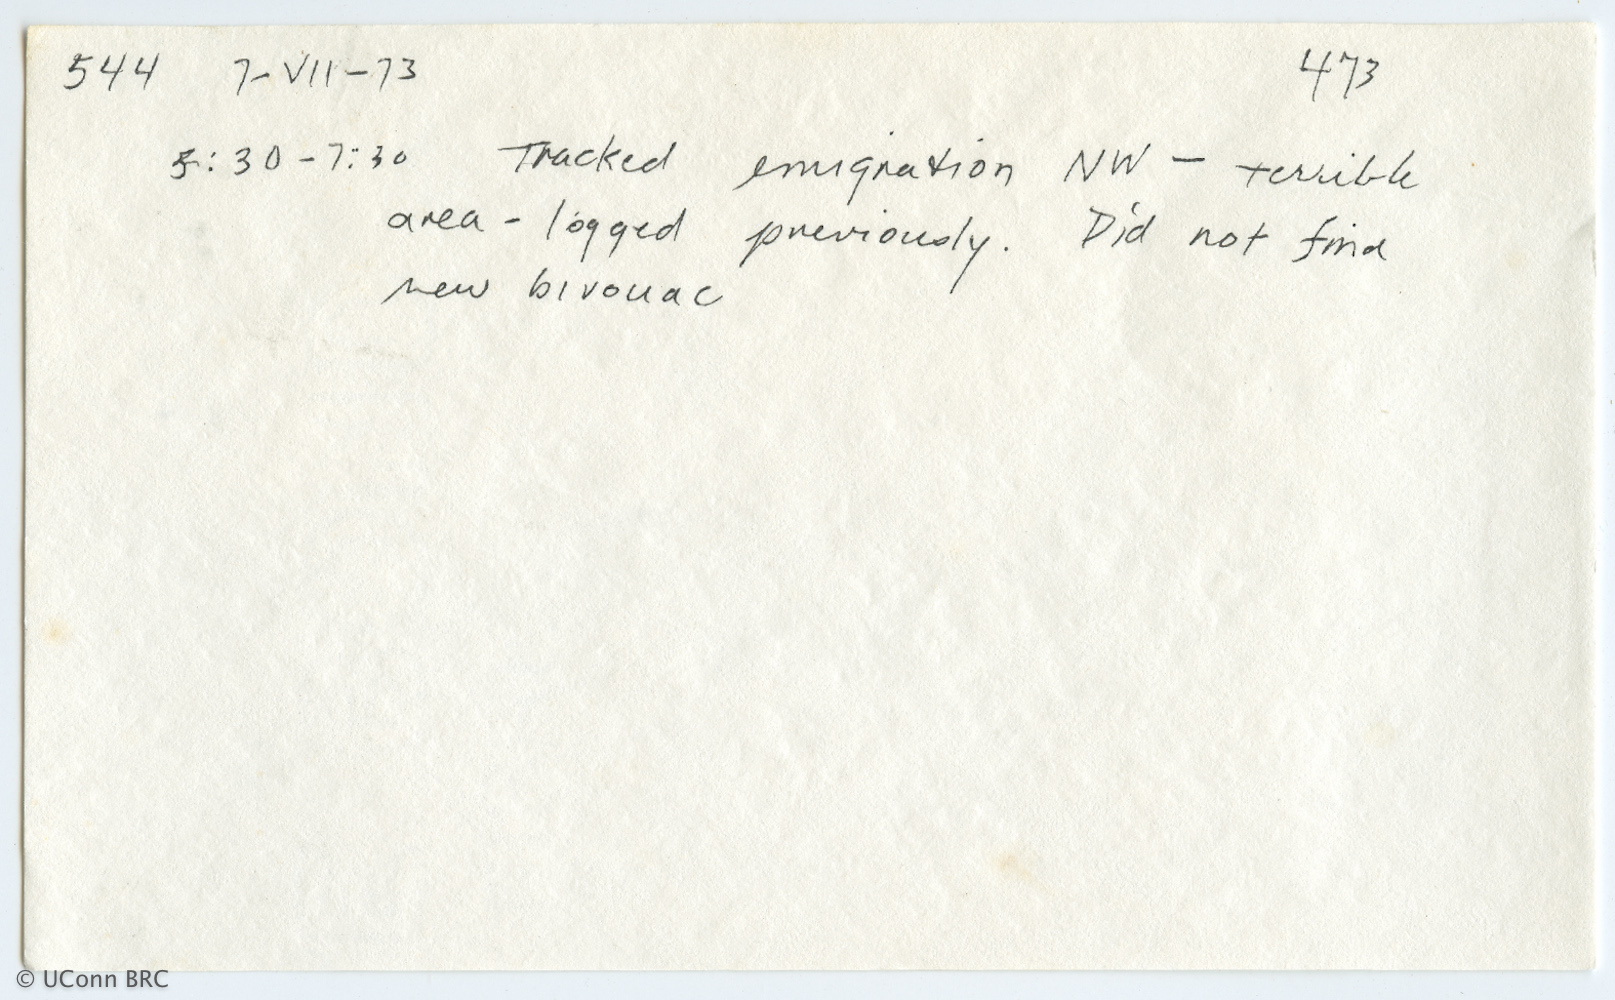 544 7-VII-73 473
5:30-7:30 Tracked emigration NW - terrible
area - logged previously. Did not find
new bivouac
© UConn BRC